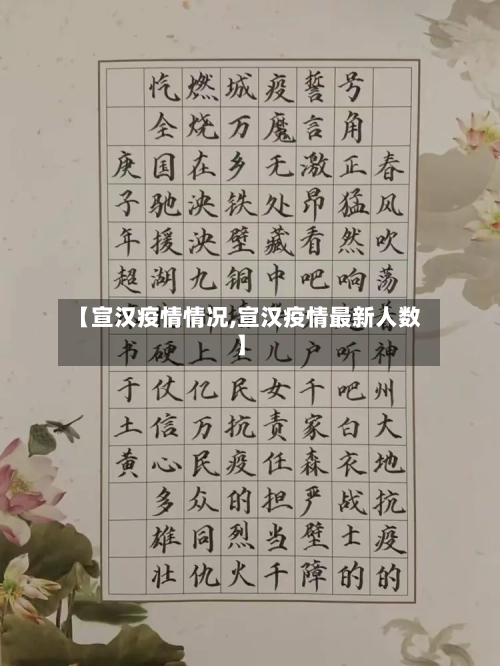 【宣汉疫情情况,宣汉疫情最新人数
】
春风吹荡神州大地抗疫的
号角正猛然响听吧白衣战士的
誓言激昂看吧户千家森严壁障
疫魔无处藏中儿女责任担当千
城万乡铁壁铜全民抗疫的烈火
燃烧在泱泱九上亿万民众同仇
忾全国驰援湖硬仗信心多雄壮
庚子年超书于土黄